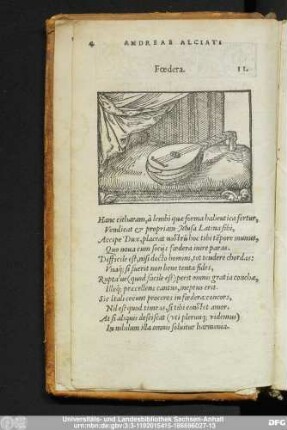 4 ANDREAE ALCIATI
Foedera. II.
Hanc citharam, à lembi quæ forma halieutica fertur,
Vendicat & propriam Musa Latina sibi,
Accipe Dux, placeat nostrū hoc tibi tēpore munus,
Quo noua cum socijs foedera inire paras.
Difficile est, nisi docto homini, tot tendere chordas:
Vnaq; si fuerit non bene tenta fides,
Ruptaúe (quod facile est) perit omnis gratia conchæ,
Illeq; præcellens cantus, ineptus erit.
Sic Itali coëunt proceres in foedera: concors,
Nil est quod timeas, si tibi constet amor.
At si aliquis desciscat (uti plerunq; videmus)
In nihilum illa omnis soluitur harmonia.
Universitäts- und Landesbibliothek Sachsen-Anhalt
DFG